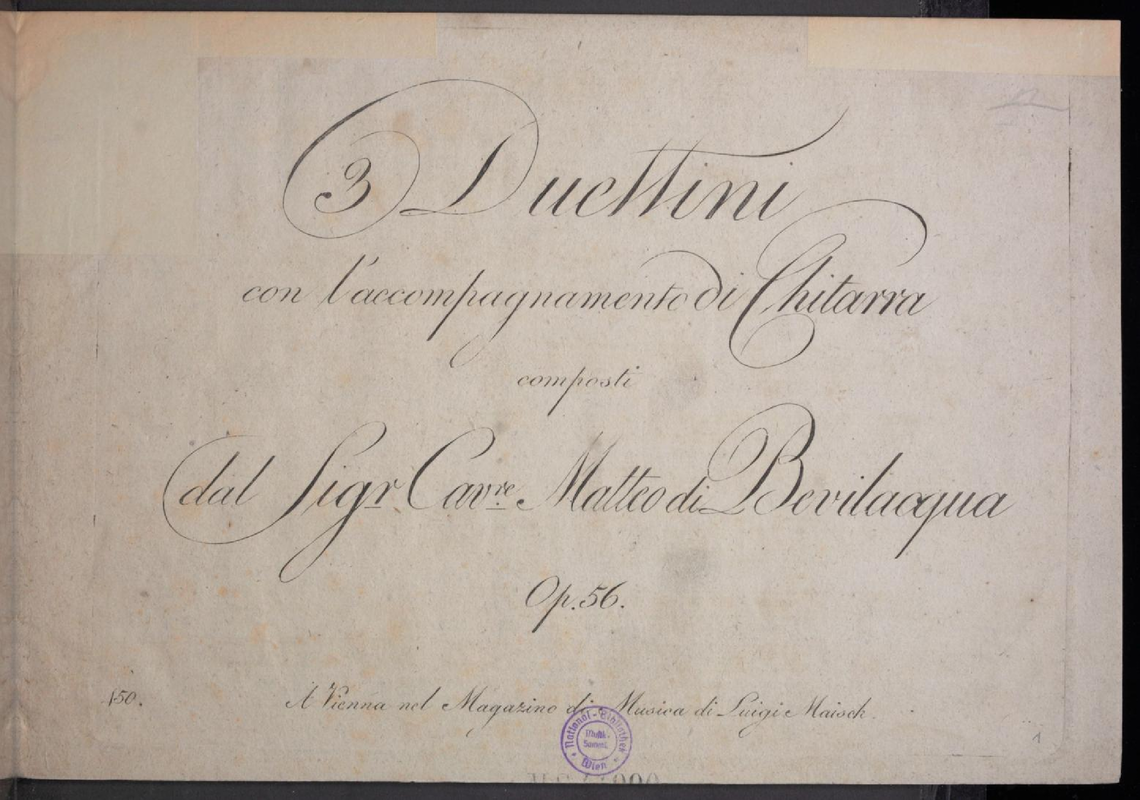 3 Duettini
con l'accompagnamento di Chitarra
composti
dal Sigr. Cavre. Matteo di Bevilacqua
Op. 56.
450. A Vienna nel Magazino di Musica di Luigi Maisch.
National-Bibliothek
Musik-
Samml.
Wien